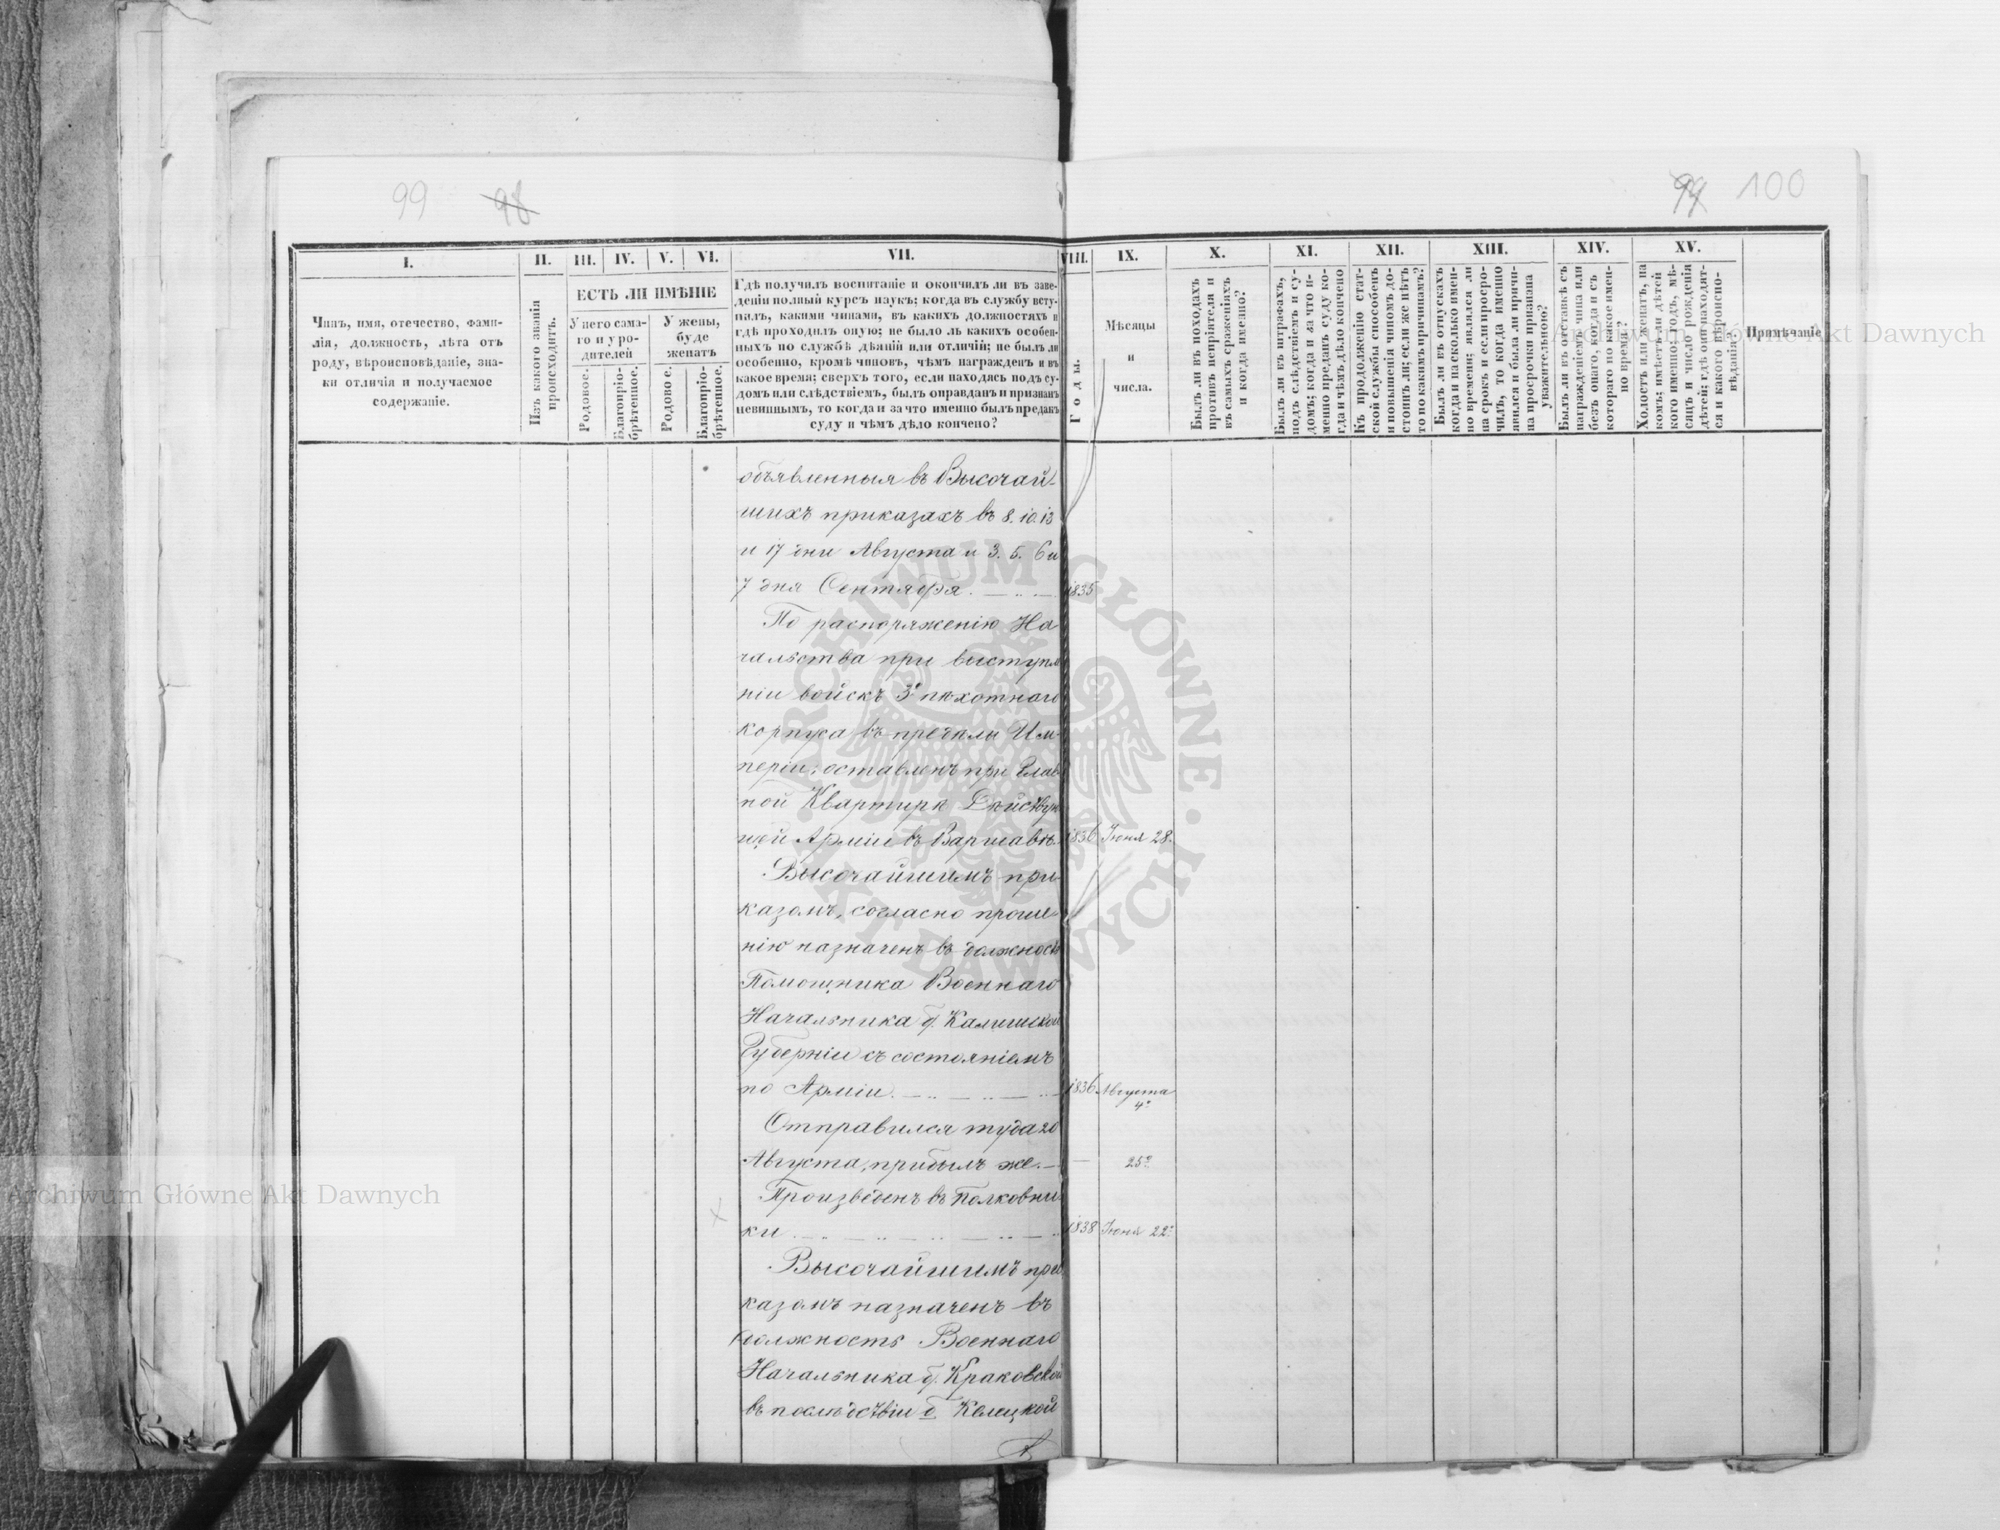 99 98
99 100
I.
II.
III.
IV.
V.
VI.
VII.
VIII.
IX.
X.
XI.
XII.
XIII.
XIV.
XV.
Чинъ, имя, отечество, фами-
лія, должность, лѣта отъ
роду, вѣроисповѣданіе, зна-
ки отличія и получаемое
содержаніе.
Изъ какого званія
происходитъ.
ЕСТЬ ЛИ ИМѢНІЕ
У него сама-
го и у ро-
дителей
У жены,
буде
женатъ
Родовое.
Благоприо-
брѣтенное.
Родовое.
Благоприо-
брѣтенное.
Гдѣ получилъ воспитаніе и окончилъ ли въ заве-
деніи полный курсъ наукъ; когда въ службу всту-
пилъ, какими чинами, въ какихъ должностяхъ и
гдѣ проходилъ оную; не было ль какихъ особен-
ныхъ по службѣ дѣяній или отличій; не былъ ли
особенно, кромѣ чиновъ, чѣмъ награжденъ и въ
какое время; сверхъ того, если находясь подъ су-
домъ или слѣдствіемъ, былъ оправданъ и признанъ
невиннымъ, то когда и за что именно былъ преданъ
суду и чѣмъ дѣло кончено?
Годы.
Мѣсяцы
и
числа.
Былъ ли въ походахъ
противъ непріятеля и
въ самыхъ сраженіяхъ
и когда именно?
Былъ ли въ штрафахъ,
подъ слѣдствіемъ и су-
домъ; когда и за что и-
менно преданъ суду ко-
гда и чѣмъ дѣло кончено
Къ продолженію стат-
ской службы способенъ
и повышенія чиномъ до-
стоинъ ли; если же нѣтъ
то по какимъ причинамъ?
Былъ ли въ отпускахъ
когда и насколько имен-
но времени; являлся ли
на срокъ и если просро-
чилъ, то когда именно
явился и была ли причи-
на просрочки признана
уважительною?
Былъ ли въ отставкѣ съ
награжденіемъ чина или
безъ онаго, когда и съ
котораго по какое имен-
но время?
Холостъ или женатъ, на
комъ; имѣетъ ли дѣтей
кого именно; годъ, мѣ-
сяцъ и число рожденія
дѣтей; гдѣ они находят-
ся и какого вѣроиспо-
вѣданія?
Примѣчаніе
объявленныя въ Высочай-
шихъ приказахъ въ 8. 10. 13
и 17 дни Августа и 3. 5. 6 и
7 дня Сентября. 1835
По распоряженію На
чальства при выступле
ніи войскъ 3го пѣхотнаго
корпуса въ предѣлы Им-
періи, оставленъ при Глав
ной Квартирѣ Дѣйствую
щей Арміи въ Варшавѣ. 1836 Іюня 28.
Высочайшимъ при-
казомъ, согласно проше-
нію назначенъ въ должность
Помощника Военнаго
Начальника б. Калишской
Губерніи съ состояніемъ
по Арміи. 1836 Августа
4го
Отправился туда 20
Августа, прибылъ же. — 25го
Произведенъ въ Полковни
ки 1838 Іюня 22го
Высочайшимъ при
казомъ назначенъ въ
должность Военнаго
Начальника б. Краковской
въ послѣдствіи б. Келецкой
ARCHIWUM GŁÓWNE AKT DAWNYCH
Archiwum Główne Akt Dawnych
Archiwum Główne Akt Dawnych